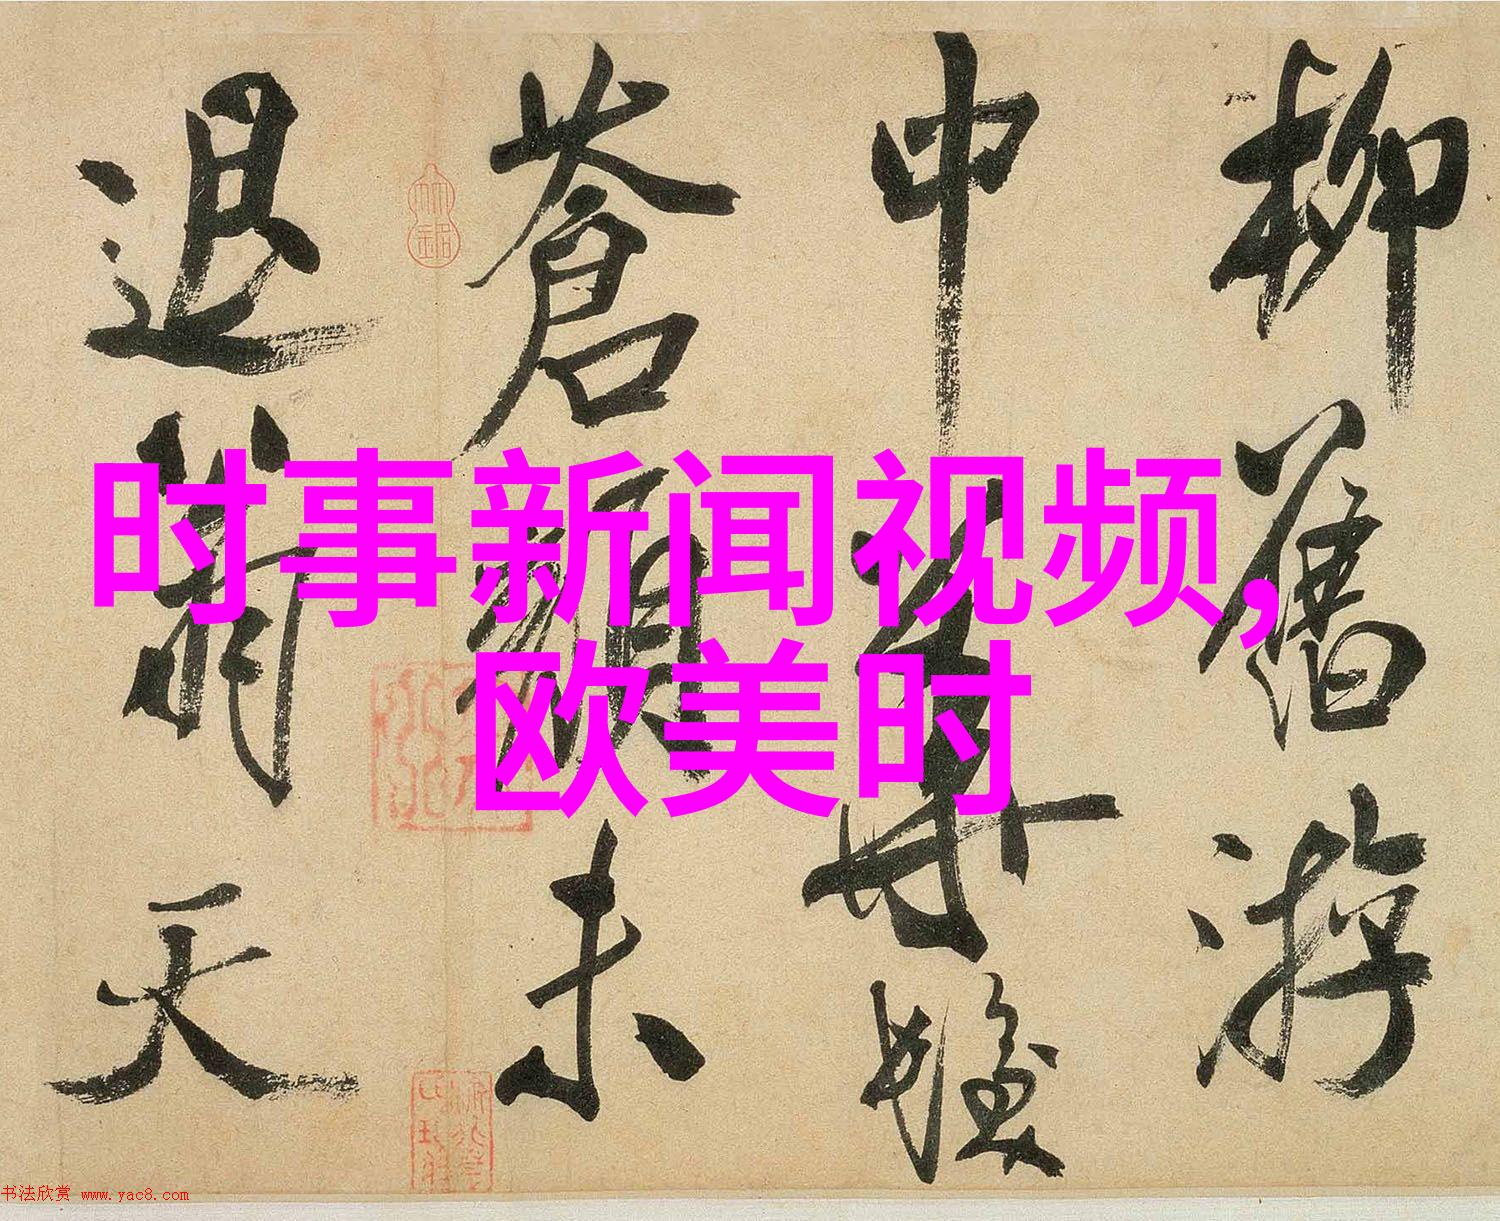 柳舊游
中
蒼顏未
退天
时事新闻视频,
欧美时
书法欣赏 www.yac8.com